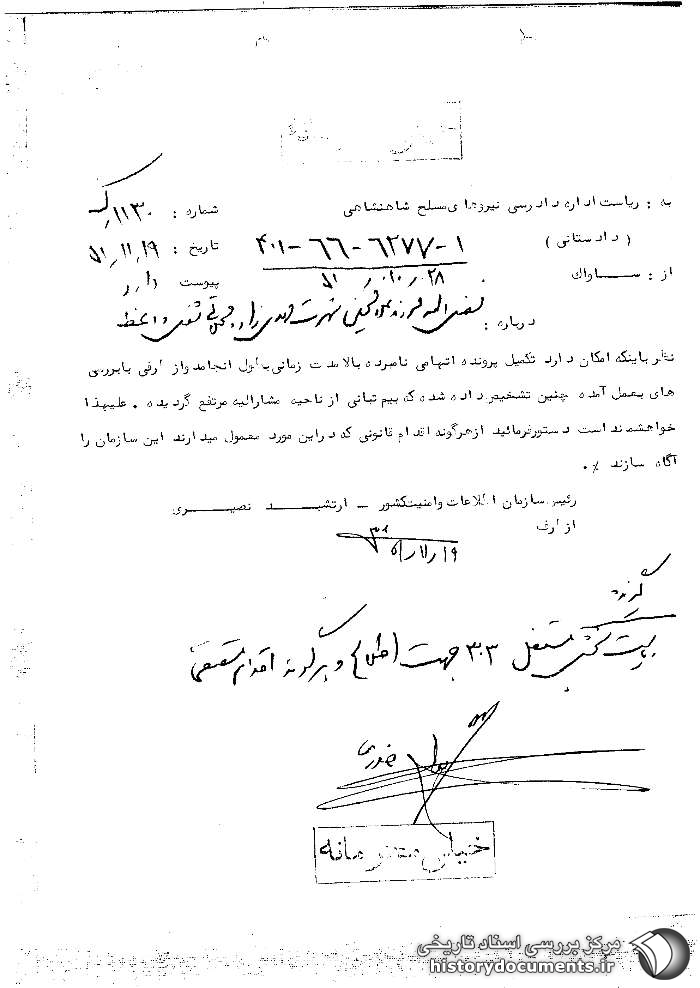 به : ریاست اداره دادرسی نیروهای مسلح شاهنشاهی
شماره : ۱۱۳۰
( دادستانی )
۴۰۱-۶۶-۶۲۷۷-۱
تاریخ : ۵۱/۱۱/۱۹
از : ســـاواک
۲۸/۱۰/۵۱
پیوست دارد
درباره : فضل اله فرزند شهرت مهدی زاده محلاتی شغل واعظ
نظر باینکه امکان دارد تکمیل پرونده اتهامی نامبرده بالا مدت زمانی بطول انجامد واز طرفی بابررسی
های بعمل آمده چنین تشخیص داده شده که بیم تبانی از ناحیه مشارالیه مرتفع گردیده . علیهذا
خواهشمند است دستورفرمائید ازهرگونه اقدام قانونی که دراین مورد معمول میدارند این سازمان را
آگاه سازند ٪.
رئیس سازمان اطلاعات وامنیت کشور – ارتشبــد نصیــری
از طرف
۵۱/۱۱/۱۹
گیرنده
مستقل ۳۰۳ جهت اطلاع و هرگونه اقدام مقتضی
خیلی محرمانه
مرکز بررسی اسناد تاریخی
historydocuments.ir